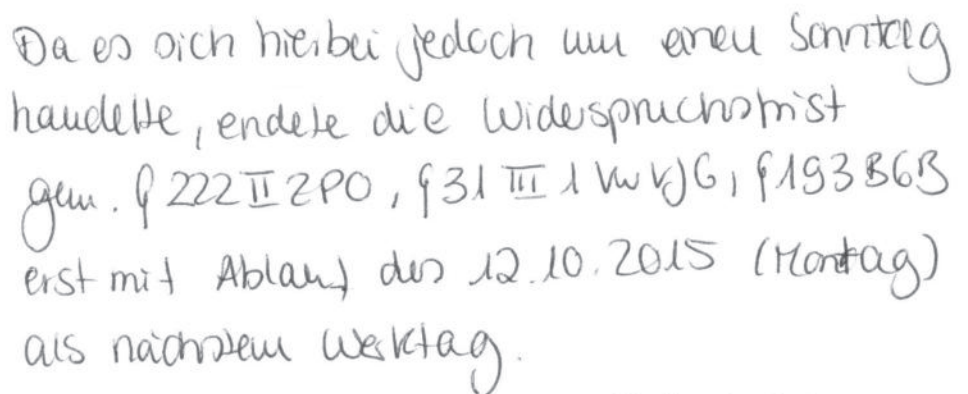 Da es sich hierbei jedoch um einen Sonntag
handelte, endete die Widerspruchsfrist
gem. § 222 II ZPO, § 31 III 1 VwVfG, § 193 BGB
erst mit Ablauf des 12.10.2015 (Montag)
als nächstem Werktag.